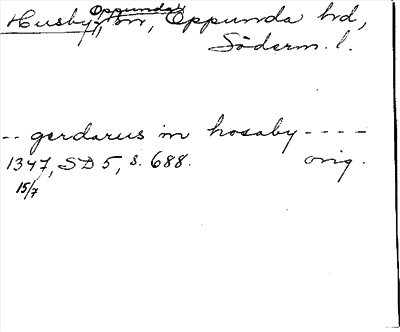 Oppunda
Husby, sn, Oppunda hd,
Söderm. l.
-- gerdarus in hosaby ----
1347, SD 5, s. 688. orig.
15/7